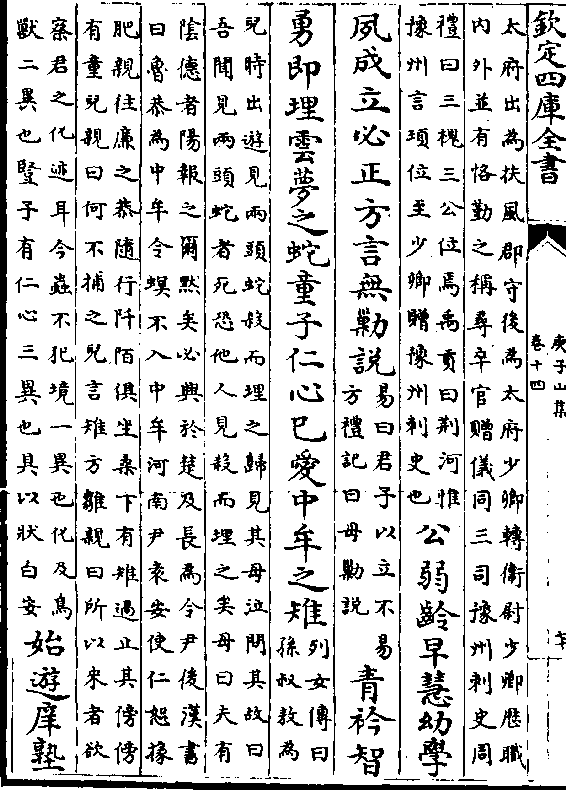 欽定四庫全書
庾子山集
卷十四
太府出為扶風郡守後為太府少卿轉衛尉少卿歴職
內外並有恪勤之稱尋卒官贈儀同三司豫州刺史周
禮曰三槐三公位焉禹貢曰荆河惟
豫州言頊位至少卿贈豫州刺史也
公弱齡早慧幼學
夙成立必正方言無勦說
易曰君子以立不易
方禮記曰毋勦說
青衿智
勇即埋雲夢之蛇童子仁心已愛中牟之雉
列女傳曰
孫叔敖為
兒時出遊見兩頭蛇殺而埋之歸見其母泣問其故曰
吾聞見兩頭蛇者死恐他人見殺而埋之矣母曰夫有
陰德者陽報之爾黙矣必興於楚及長為令尹後漢書
曰魯恭為中牟令螟不入中牟河南尹袁安使仁恕掾
肥親往廉之恭隨行阡陌俱坐桑下有雉過止其傍傍
有童兒親曰何不捕之兒言雉方雛親曰所以來者欲
察君之化迹耳今蟲不犯境一異也化及鳥
獸二異也豎子有仁心三異也具以狀白安
始遊庠塾